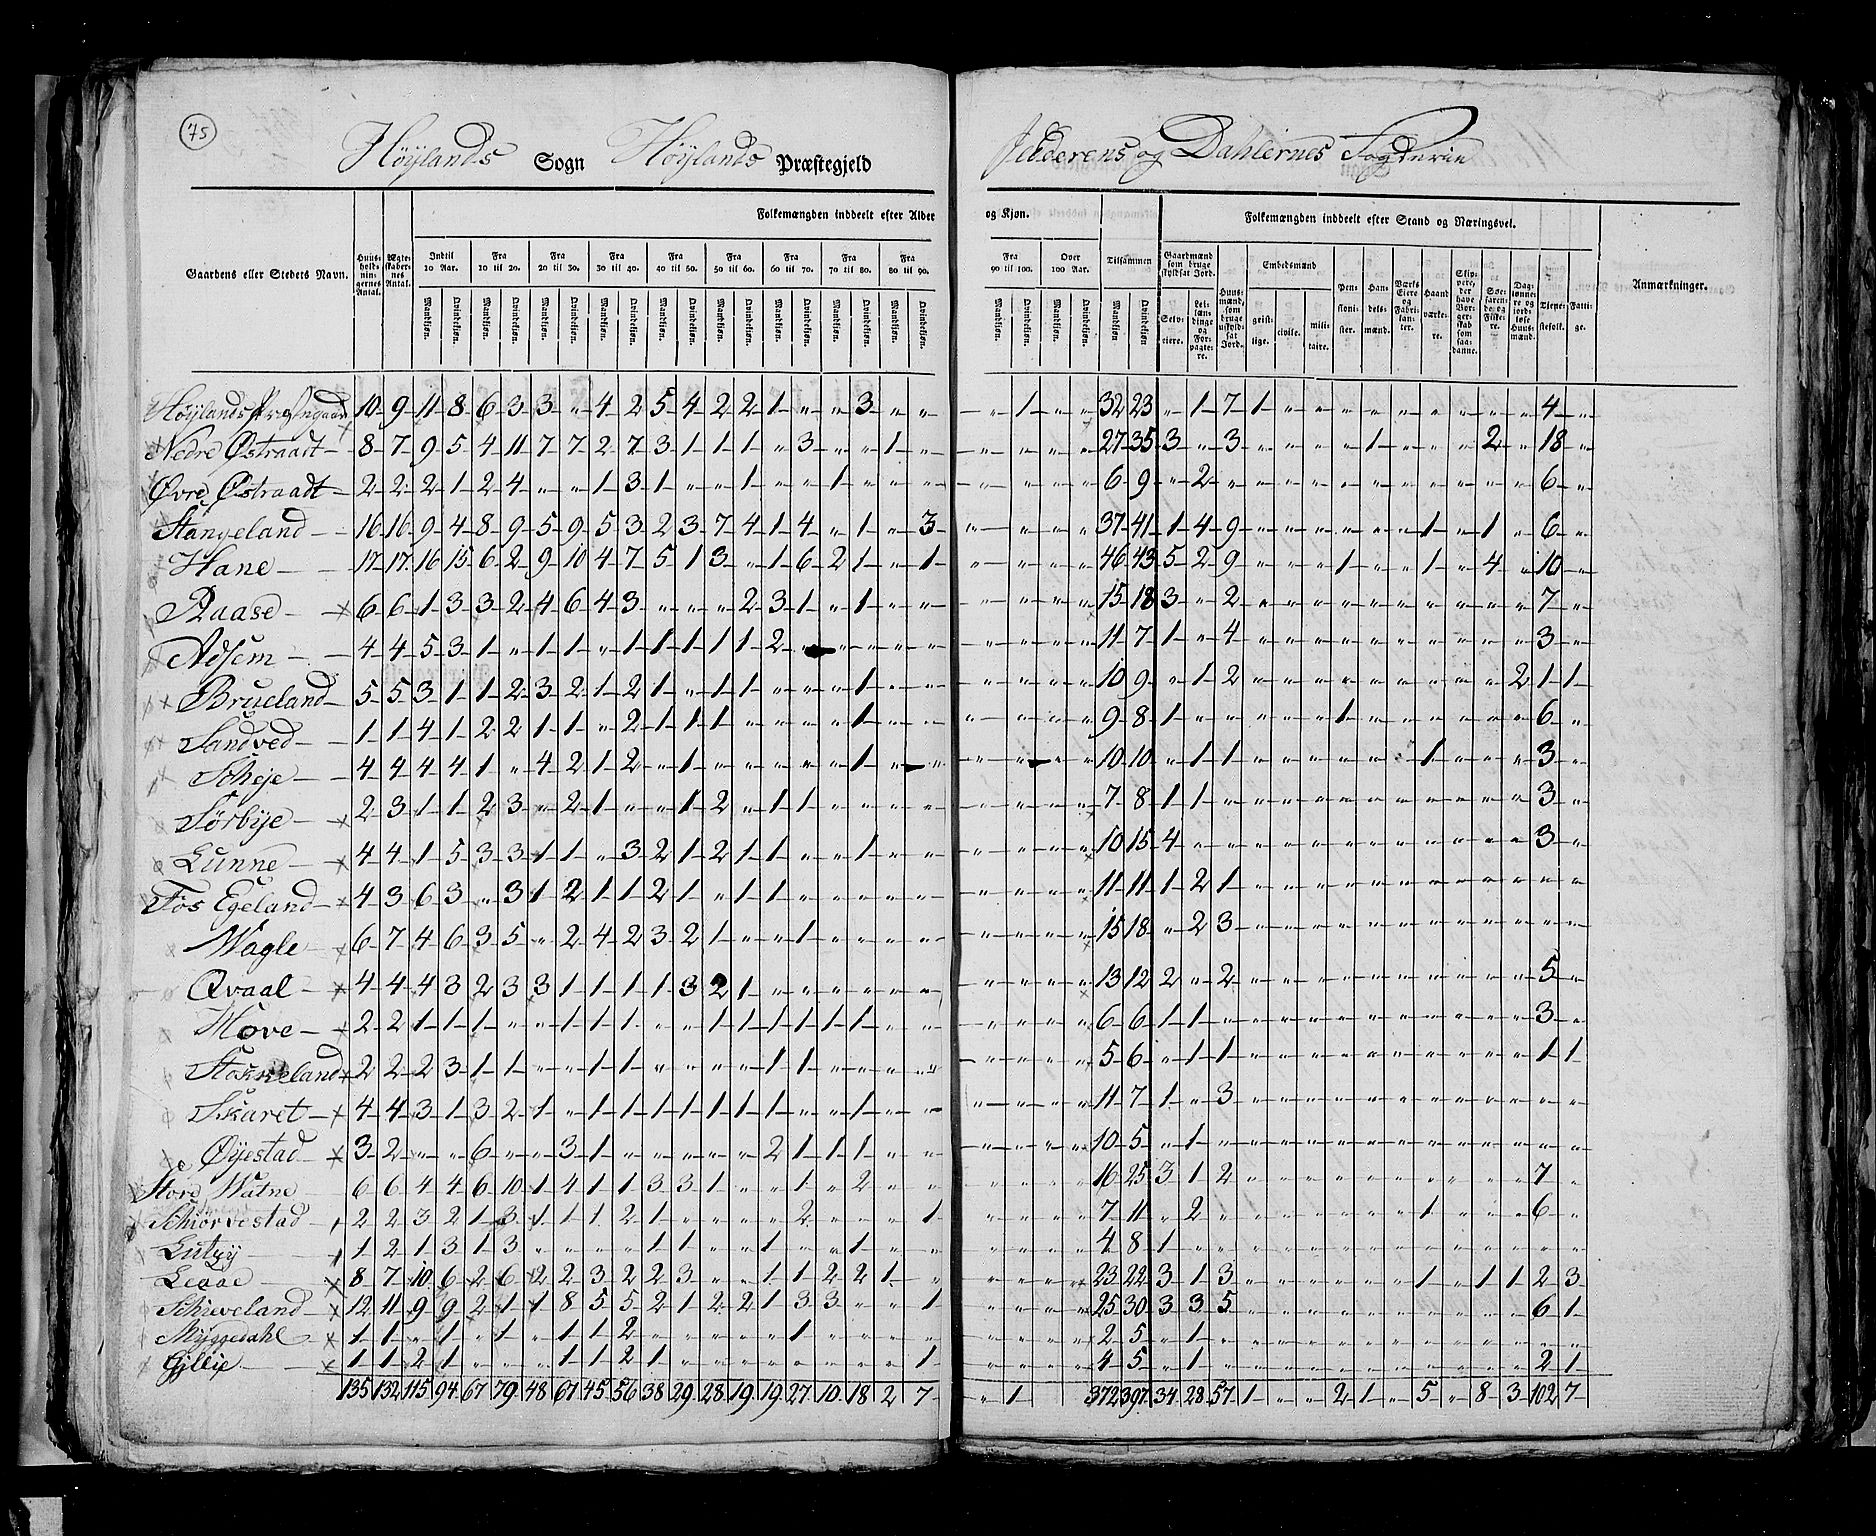 75
Höÿlands Sogn Höÿlands Præstegjeld Jedderens og Dahlernes Fogderie
Folkemængden inddeelt efter Alder og Kjøn. Folkemængden inddeelt efter Stand og Næringsvei.
Gaardens eller Stedets Navn. Huusholdningernes Antal. Ægteskabernes Antal. Indtil 10 Aar. Fra 10 til 20. Fra 20 til 30. Fra 30 til 40. Fra 40 til 50. Fra 50 til 60. Fra 60 til 70. Fra 70 til 80. Fra 80 til 90. Fra 90 til 100. Over 100 Aar. Tilsammen Gaardmænd som bruge skyldsat Jord. Huusmænd, som bruge uskyldsat Jord. Embedsmænd Pensionister. Handelsmænd. Værks Eiere og Fabrikanter. Haandværkere. Skippere, der have Borgerskab som saadanne. Søefarende og Fiskere. Daglønnere og jordløse Huusmænd. Tienestefolk. Fattige. Anmærkninger.
Mandkjøn. Qvindekjøn. Mandkjøn. Qvindekjøn. Mandkjøn. Qvindekjøn. Mandkjøn. Qvindekjøn. Mandkjøn. Qvindekjøn. Mandkjøn. Qvindekjøn. Mandkjøn. Qvindekjøn. Mandkjøn. Qvindekjøn. Mandkjøn. Qvindekjøn. Mandkjøn. Qvindekjøn. Mandkjøn. Qvindekjøn. Mandkjøn. Qvindekjøn. Selveiere. Leilændinge og Forpagtere. geistlige. civile. militaire.
Höÿlands Præstegaard 10 9 11 8 6 3 3 „ 4 2 5 4 2 2 1 „ „ 3 „ „ „ 1 „ „ 32 23 „ 1 7 1 „ „ „ „ „ „ „ „ „ 4 „
Nedre Østraadt 8 7 9 5 4 11 7 7 2 7 3 1 1 1 „ 3 „ „ 1 „ „ „ „ „ 27 35 3 „ 3 „ „ „ „ 1 „ „ „ 2 „ 18 „
Øvre Østraadt 2 2 2 1 2 4 „ „ 1 3 1 „ „ 1 „ „ 1 „ „ „ „ „ „ „ 6 9 „ 2 „ „ „ „ „ „ „ „ „ „ „ 6 „
Stangeland 16 16 9 4 8 9 5 9 5 3 2 3 7 4 1 4 „ 1 „ 3 „ „ „ „ 37 41 1 4 9 „ „ „ „ „ „ 1 „ 1 „ 6 „
Hane 17 17 16 15 6 2 9 10 4 7 5 1 3 „ 1 6 2 1 „ 1 „ „ „ „ 46 43 5 2 9 „ „ „ 1 „ „ 1 „ 4 „ 10 „
Aaase 6 6 1 3 3 2 4 6 4 3 „ „ „ 2 3 1 „ 1 „ „ „ „ „ „ 15 18 3 „ 2 „ „ „ „ „ „ „ „ „ „ 7 „
Adsem 4 4 5 3 1 „ 1 1 „ 1 1 1 1 1 2 „ „ „ „ „ „ „ „ 11 7 1 „ 4 „ „ „ „ „ „ „ „ „ „ 3 „
Brueland 5 5 3 1 1 2 3 2 1 2 1 „ 1 1 „ „ „ 1 „ „ „ „ „ „ 10 9 „ 1 2 „ „ „ „ „ „ „ „ „ 2 1 1
Sandved 1 1 4 1 2 2 1 1 „ 2 1 1 1 „ „ „ „ 1 „ „ „ „ „ „ 9 8 1 „ „ „ „ „ 1 „ „ „ „ „ „ 6 „
Scheje 4 4 4 4 1 „ 4 2 1 2 „ 1 „ „ „ „ „ 1 „ „ „ „ „ 10 10 „ 1 1 „ „ „ „ „ „ 1 „ „ „ 3 „
Sörbÿe 2 3 1 1 2 3 „ 2 1 „ „ 1 2 „ 1 1 „ „ „ „ „ „ „ „ 7 8 1 1 „ „ „ „ „ „ „ „ „ „ „ 3 „
Lunne 4 4 1 5 3 3 1 1 „ 3 2 1 2 1 1 „ „ 1 „ „ „ „ „ „ 10 15 4 „ „ „ „ „ „ „ „ „ „ „ „ 3 „
Fos Egeland 4 3 6 3 „ 3 1 2 1 1 2 1 „ 1 1 „ „ „ „ „ „ „ „ „ 11 11 1 2 1 „ „ „ „ „ „ „ „ „ „ „ „
Wagle 6 7 4 6 3 5 „ 2 4 2 3 2 1 „ „ 1 „ „ „ „ „ „ „ „ 15 18 „ 2 3 „ „ „ „ „ „ „ „ „ „ „ „
Qvaal 4 4 4 3 2 3 3 1 1 1 1 3 2 1 „ „ „ „ „ „ „ „ „ „ 13 12 2 „ 2 „ „ „ „ „ „ „ „ „ „ 5 „
Hove 2 2 1 1 1 „ „ 1 1 1 „ „ 1 1 1 1 1 1 „ „ „ „ „ „ 6 6 1 1 „ „ „ „ „ „ „ „ „ „ „ 3 „
Stokkeland 2 2 2 3 1 1 „ „ 1 1 „ „ „ „ 1 1 „ „ „ „ „ „ „ „ 5 6 „ 1 1 „ „ „ „ „ „ „ „ „ „ 1 1
Skaret 4 4 3 1 3 2 1 „ 1 1 1 1 1 1 1 „ „ 1 „ „ „ „ „ „ 11 7 1 „ 3 „ „ „ „ „ „ „ „ „ „ „ „
Øÿestad 3 2 „ „ 6 „ „ 3 1 „ „ „ „ „ 2 1 1 1 „ „ „ „ „ „ 10 5 „ 1 „ „ „ „ „ „ „ „ „ „ „ „ „
Store Watne 6 6 4 4 6 10 1 4 1 1 3 3 1 „ „ 1 „ 2 „ „ „ „ „ „ 16 25 3 1 2 „ „ „ „ „ „ „ „ „ „ 7 „
Schiörvestad 2 2 3 2 1 3 1 1 1 2 1 „ „ „ „ 2 „ „ „ 1 „ „ „ „ 7 11 „ 2 „ „ „ „ „ „ „ 1 „ „ „ 6 „
1 2 1 3 1 3 „ „ „ „ 1 1 „ „ 1 „ „ 1 „ „ „ „ „ „ 4 8 1 „ „ „ „ „ „ „ „ „ „ „ „ „ „
8 7 10 6 2 6 2 2 3 2 2 3 „ „ 1 1 2 2 1 „ „ „ „ „ 23 22 3 1 3 „ „ „ „ „ „ 1 „ 1 1 2 3
Schieveland 12 11 9 9 2 1 1 8 5 5 2 1 2 2 1 3 3 „ „ 1 „ „ „ „ 25 30 3 3 5 „ „ „ „ „ „ „ „ „ „ 6 1
Mÿggedahl 1 1 „ 1 „ 1 „ 1 1 2 „ „ „ „ „ 1 „ „ „ „ „ „ „ „ 2 5 „ 1 „ „ „ „ „ „ „ „ „ „ „ „ „
1 1 2 1 „ „ „ 1 1 2 1 „ „ „ „ „ „ „ „ 1 „ „ „ „ 4 5 „ 1 „ „ „ „ „ „ „ „ „ „ „ 2 1
135 132 115 94 67 79 48 67 45 56 38 29 28 19 19 27 10 18 2 7 „ 1 372 397 34 28 57 1 „ „ 2 1 „ 5 „ 8 3 102 7